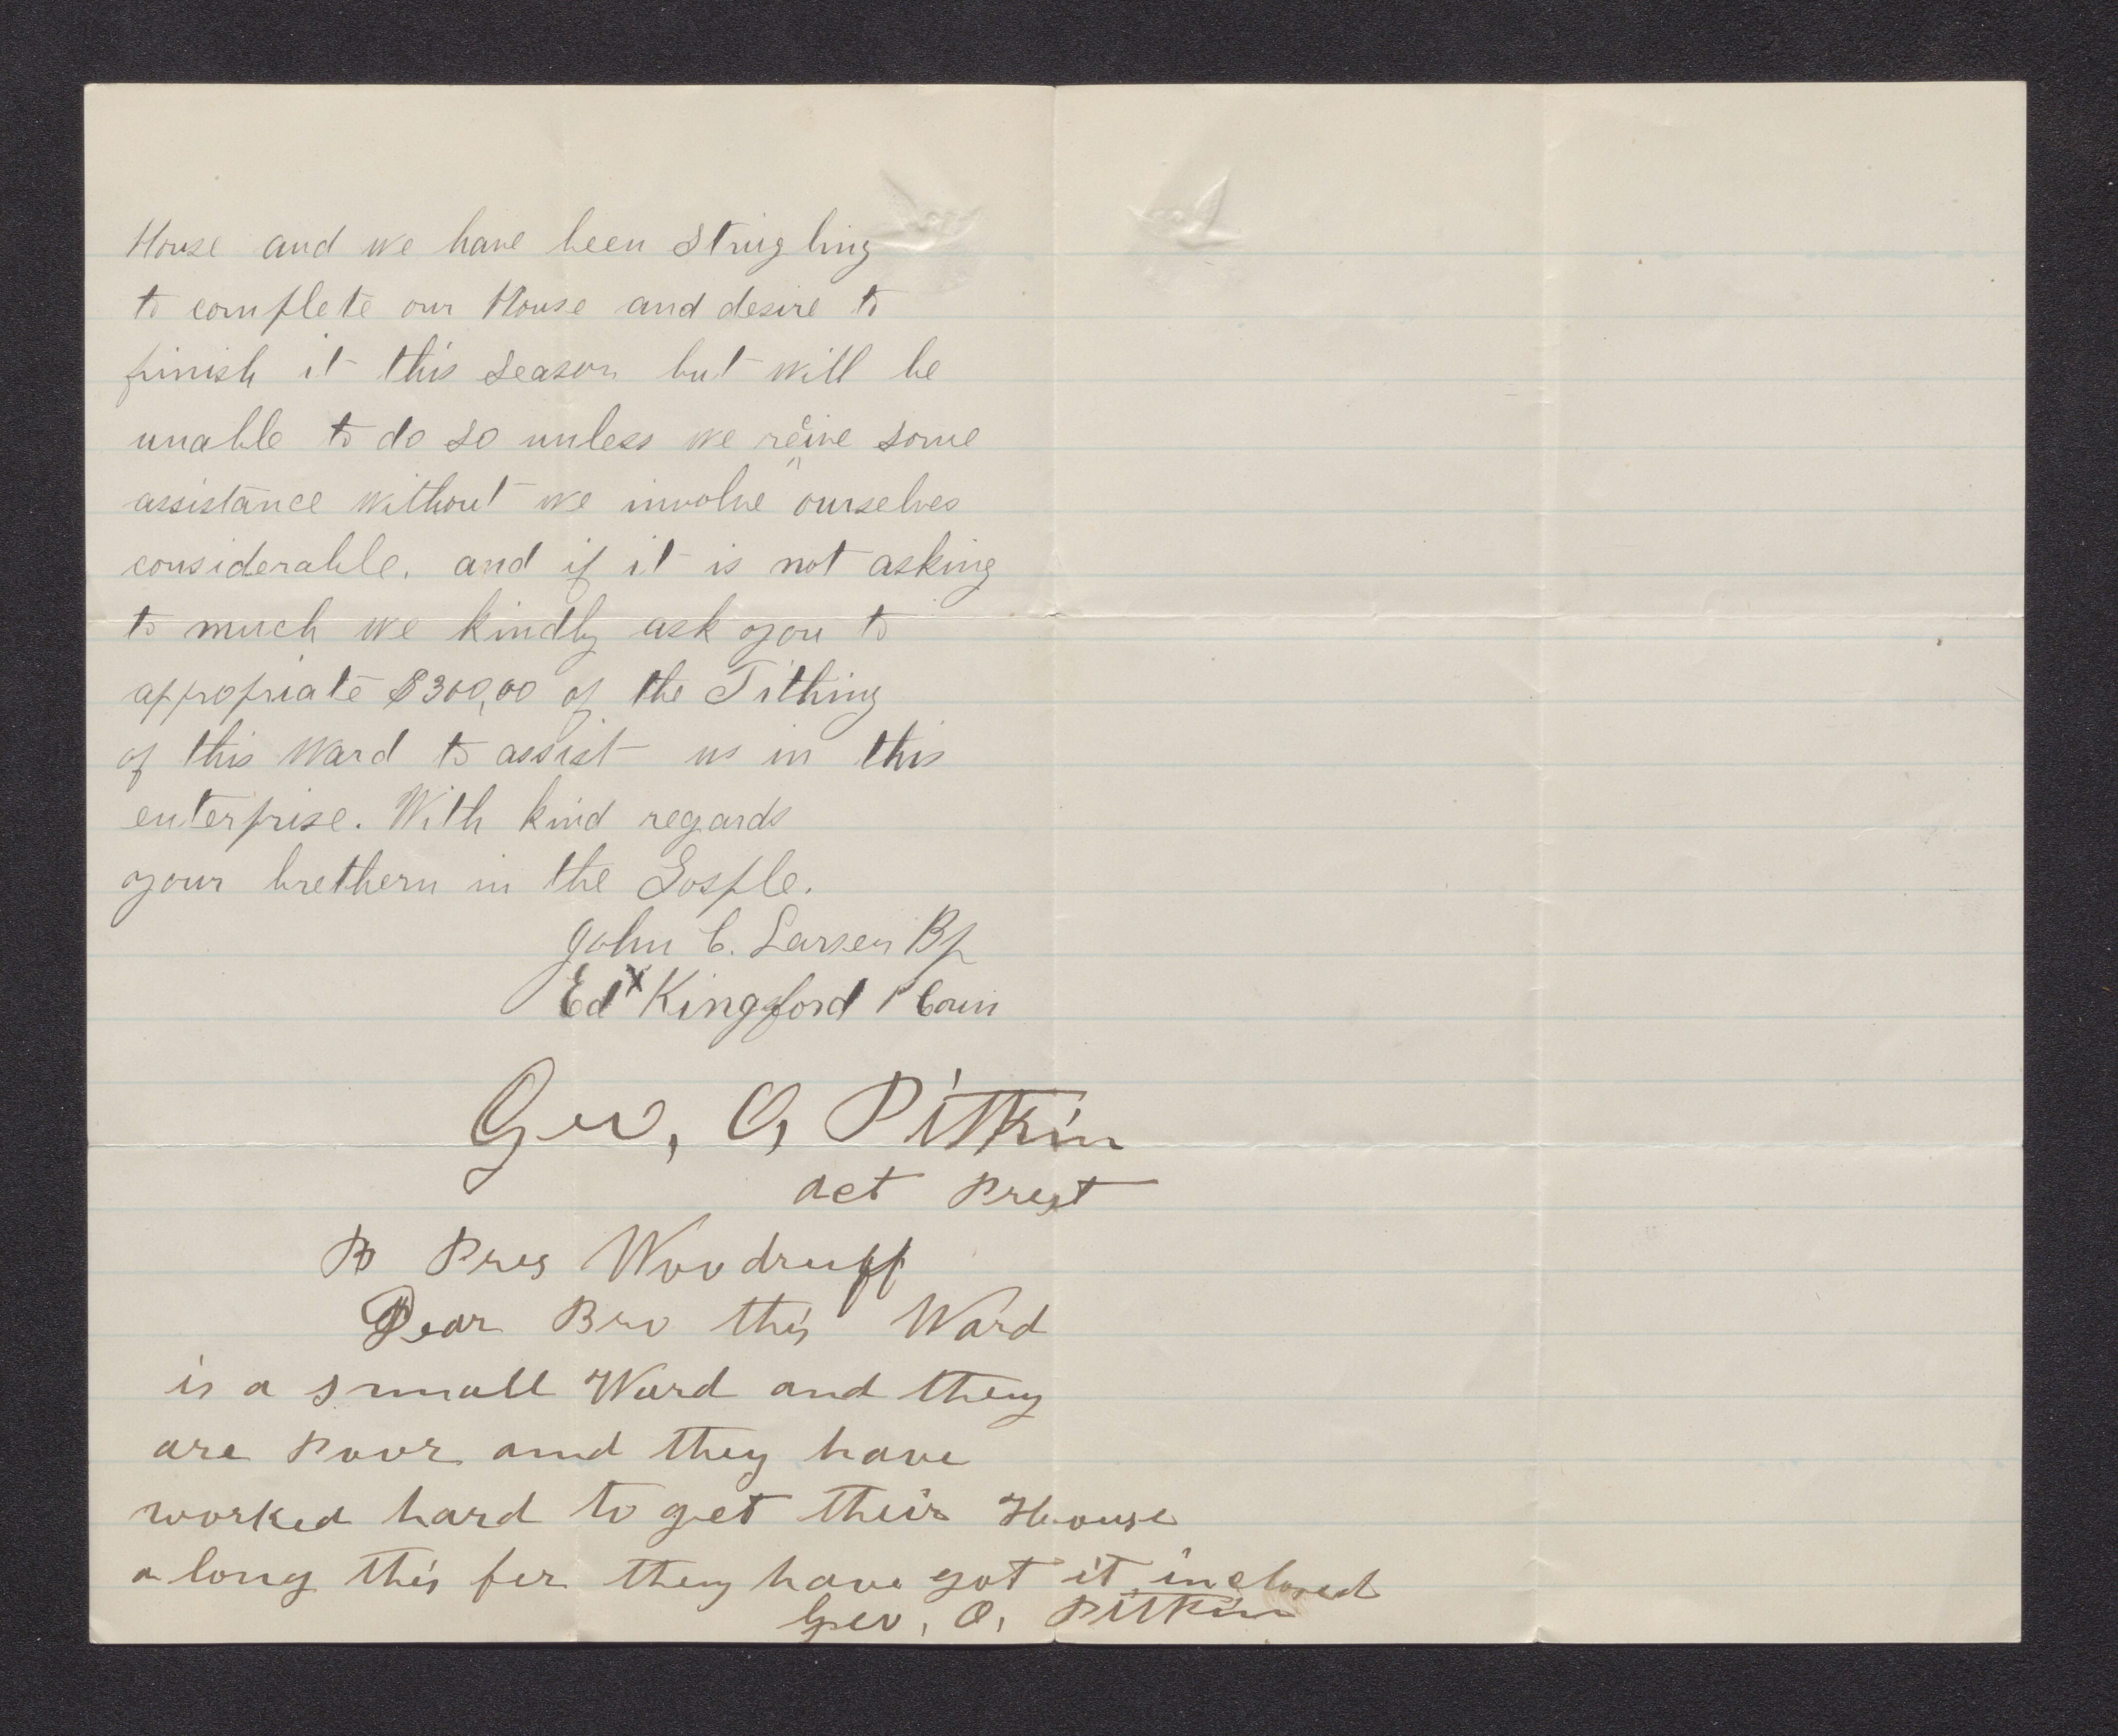 House and we have been Strugling
to complete our House and desire to
finish it this Season but will be
unable to do so unless we reeive some
assistance without we involve ourselves
considerable. and if it is not asking
to much we kindly ask you to
appropriate $300,00 of the Tithing
of this Ward to assist us in this
enterprise. With kind regards
your brethern in the Gosple.
John C. Larsen Bp
Ed X Kingsford 1st Coun
Geo, O, Pitkin
act Prest
To Pres Woodruff
Dear Bro this Ward
is a small Ward and they
are Poor and they have
worked hard to get their House
along this fer they have got it inclosed
Geo, O, Pitkin